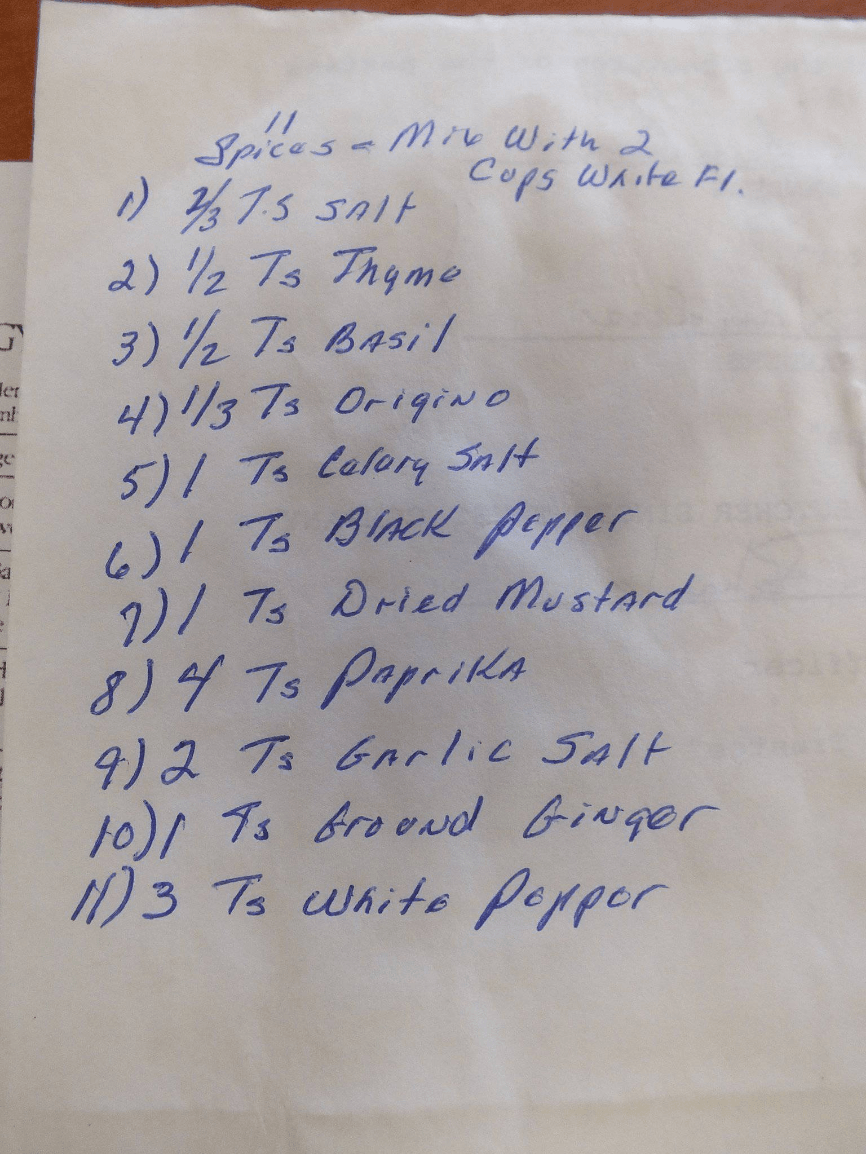 11
Spices = Mix With 2
Cups White Fl.
1) 2/3 T.S SAlt
2) 1/2 Ts Thyme
3) 1/2 Ts BAsil
4) 1/3 Ts OrigiNo
5) 1 Ts Celery SAlt
6) 1 Ts BlAcK Pepper
7) 1 Ts Dried MustArd
8) 4 Ts PApriKA
9) 2 Ts GArlic SAlt
10) 1 Ts Ground GiNger
11) 3 Ts White Pepper